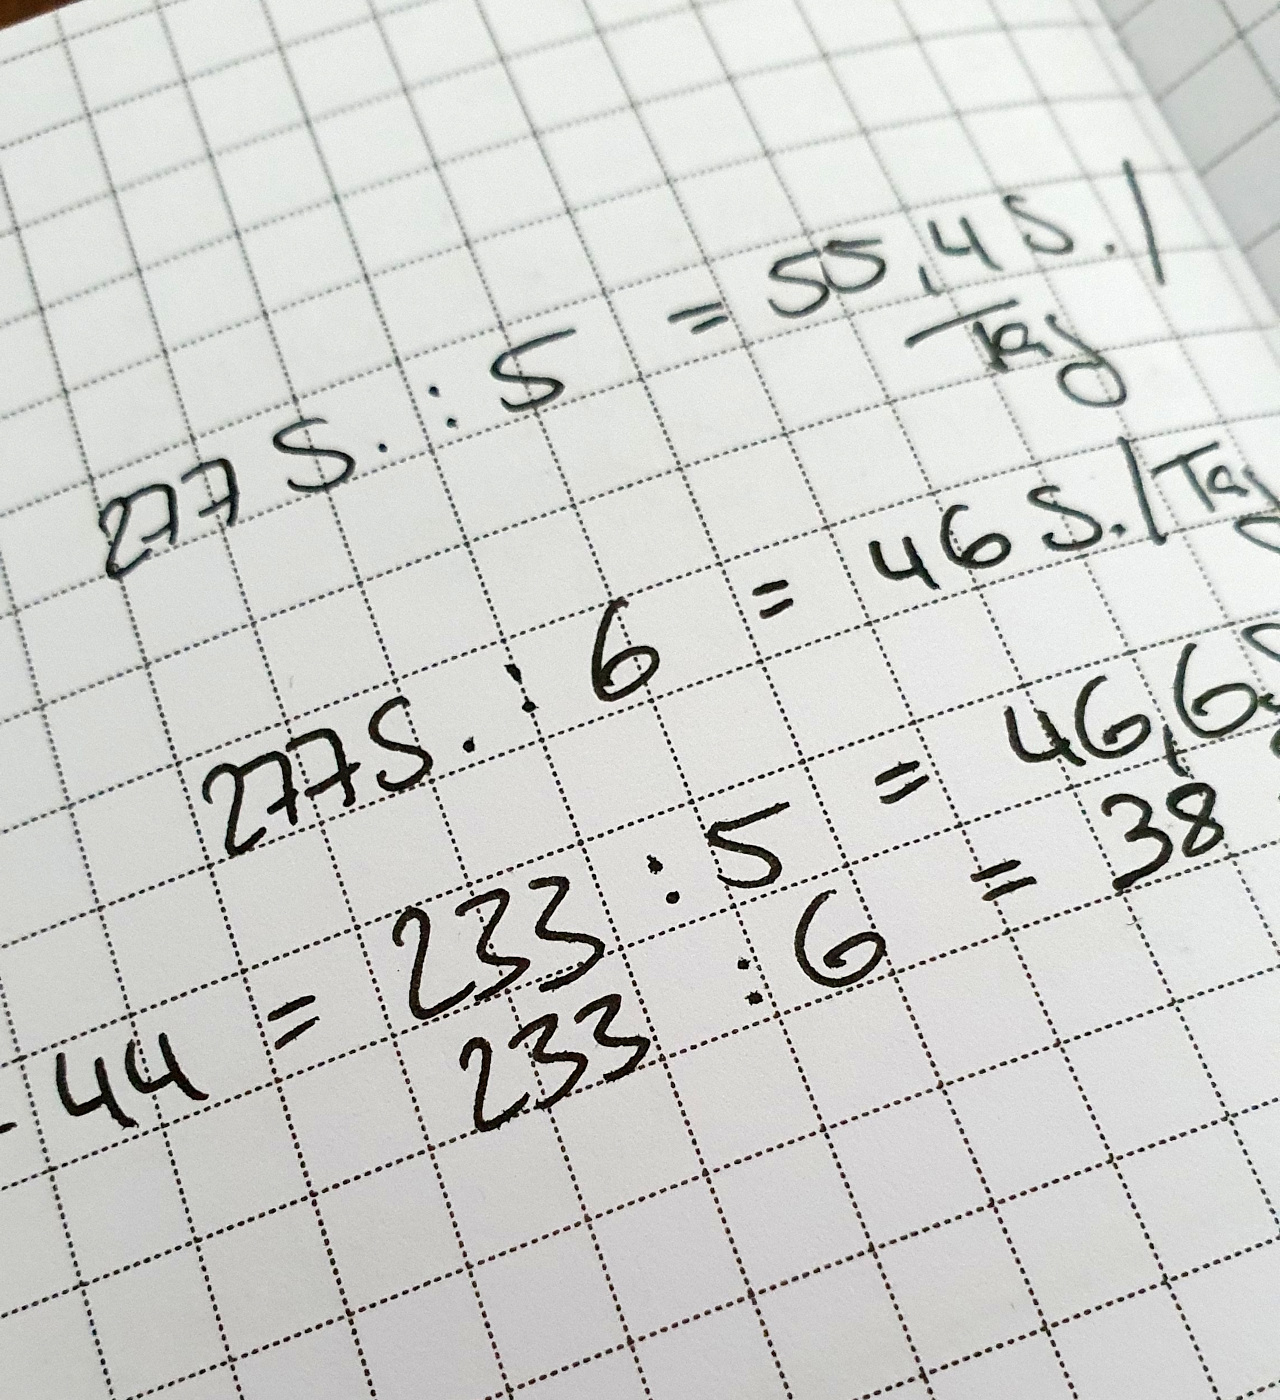 277 S. : 5 = 55,4 S./
Tag
277 S. : 6 = 46 S./Tag
- 44 = 233 : 5 = 46,6 S
233 : 6 = 38